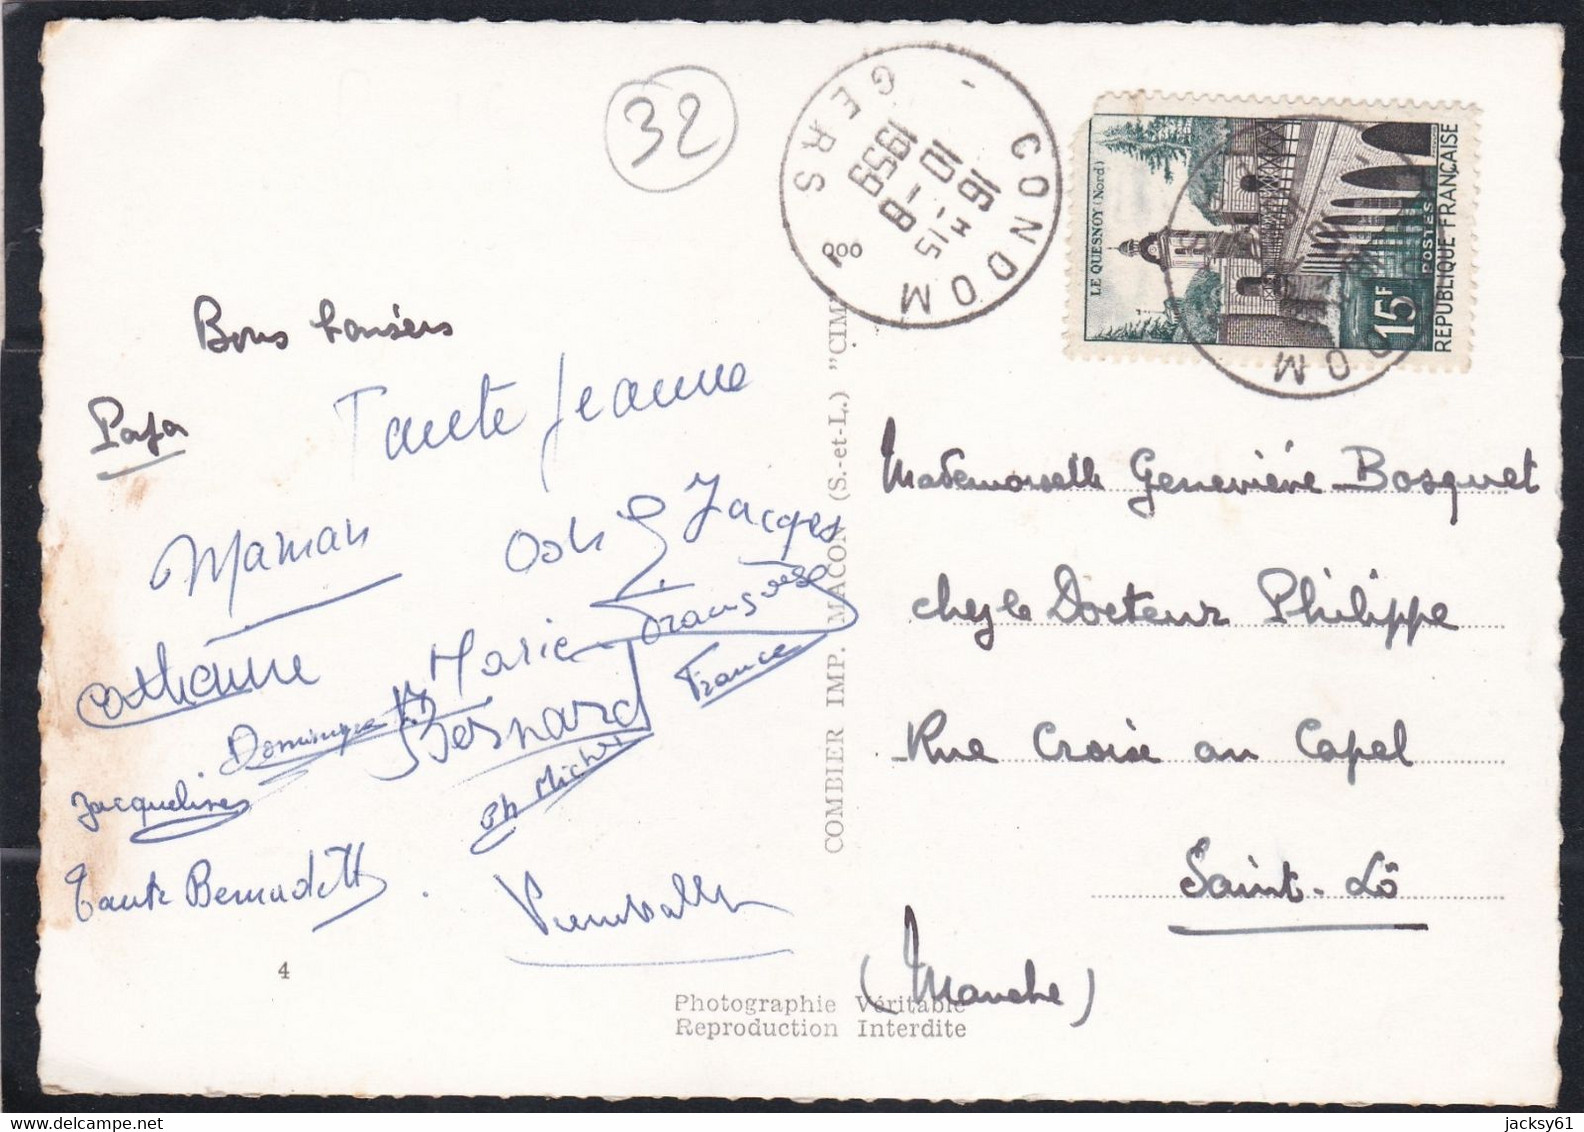 32
CONDOM
GERS
16 H 15
10 - 8
1959
LE QUESNOY (Nord)
15F
POSTES
RÉPUBLIQUE FRANÇAISE
OM
Bons baisers
Papa
Tante Jeanne
Maman
Odile Jacques
Catherine
Marie-Françoise
France
Dominique
Bernard
Jacqueline
Ph Michel
Tante Bernadette
4
COMBIER IMP. MACON (S.-et-L.) "CIM"
Mademoiselle Geneviève Bosquet
chez le Docteur Philippe
Rue Croix au Capel
Saint-Lô
(Manche)
Photographie Véritable
Reproduction Interdite
jacksy61